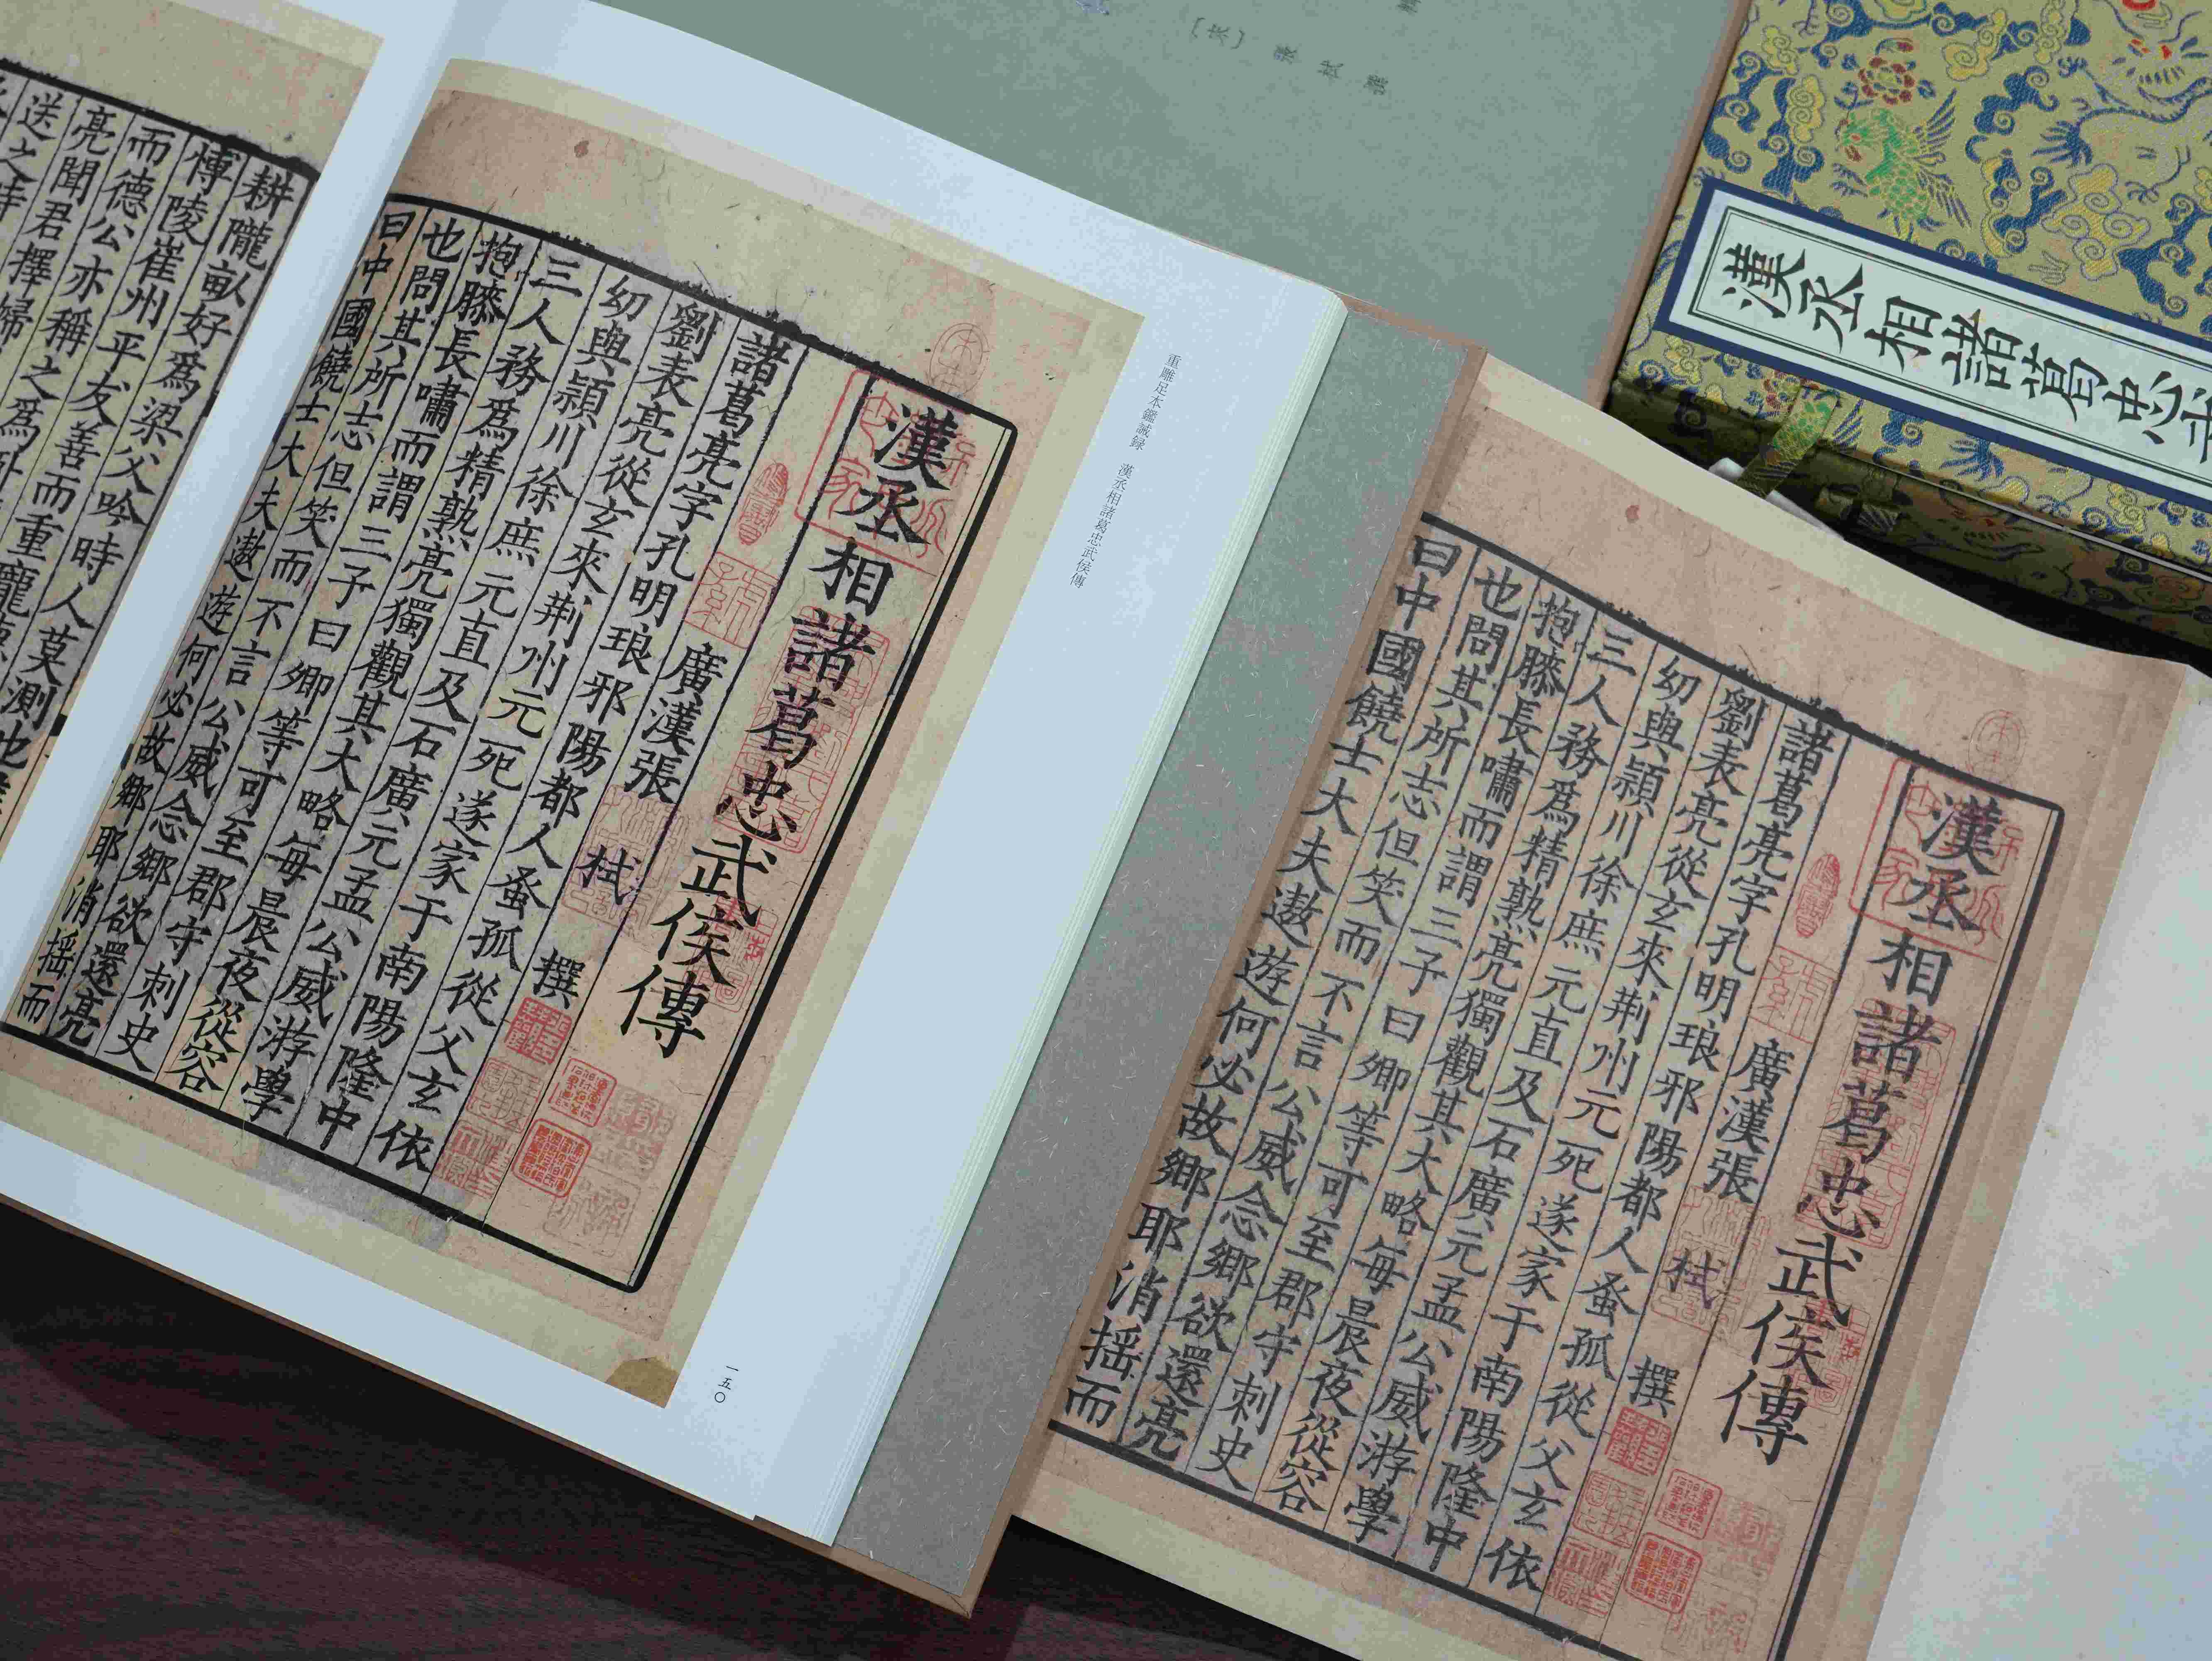 漢丞相諸葛忠武侯傳
廣漢張栻撰
諸葛亮字孔明琅邪陽都人蚤孤從父玄依
劉表亮從玄來荆州元死遂家于南陽隆中
幼與潁川徐庶元直及石廣元孟公威游學
三人務爲精熟亮獨觀其大略每晨夜從容
抱膝長嘯而謂三子曰卿等可至郡守刺史
也問其所志但笑而不言公威念鄉欲還亮
曰中國饒士大夫遨遊何必故鄉耶消揺而
耕隴畝好爲梁父吟時人莫測也
愽陵崔州平友善而重龐
而德公亦稱之爲
亮聞君擇婦
送之
重雕足本鑑誡録 漢丞相諸葛忠武侯傳
一五〇
漢丞相諸葛忠武侯傳
廣漢張栻撰
諸葛亮字孔明琅邪陽都人蚤孤從父玄依
劉表亮從玄來荆州元死遂家于南陽隆中
幼與潁川徐庶元直及石廣元孟公威游學
三人務爲精熟亮獨觀其大略每晨夜從容
抱膝長嘯而謂三子曰卿等可至郡守刺史
也問其所志但笑而不言公威念鄉欲還亮
曰中國饒士大夫遨遊何必故鄉耶消揺而
漢丞相諸葛忠武
〔宋〕張栻撰